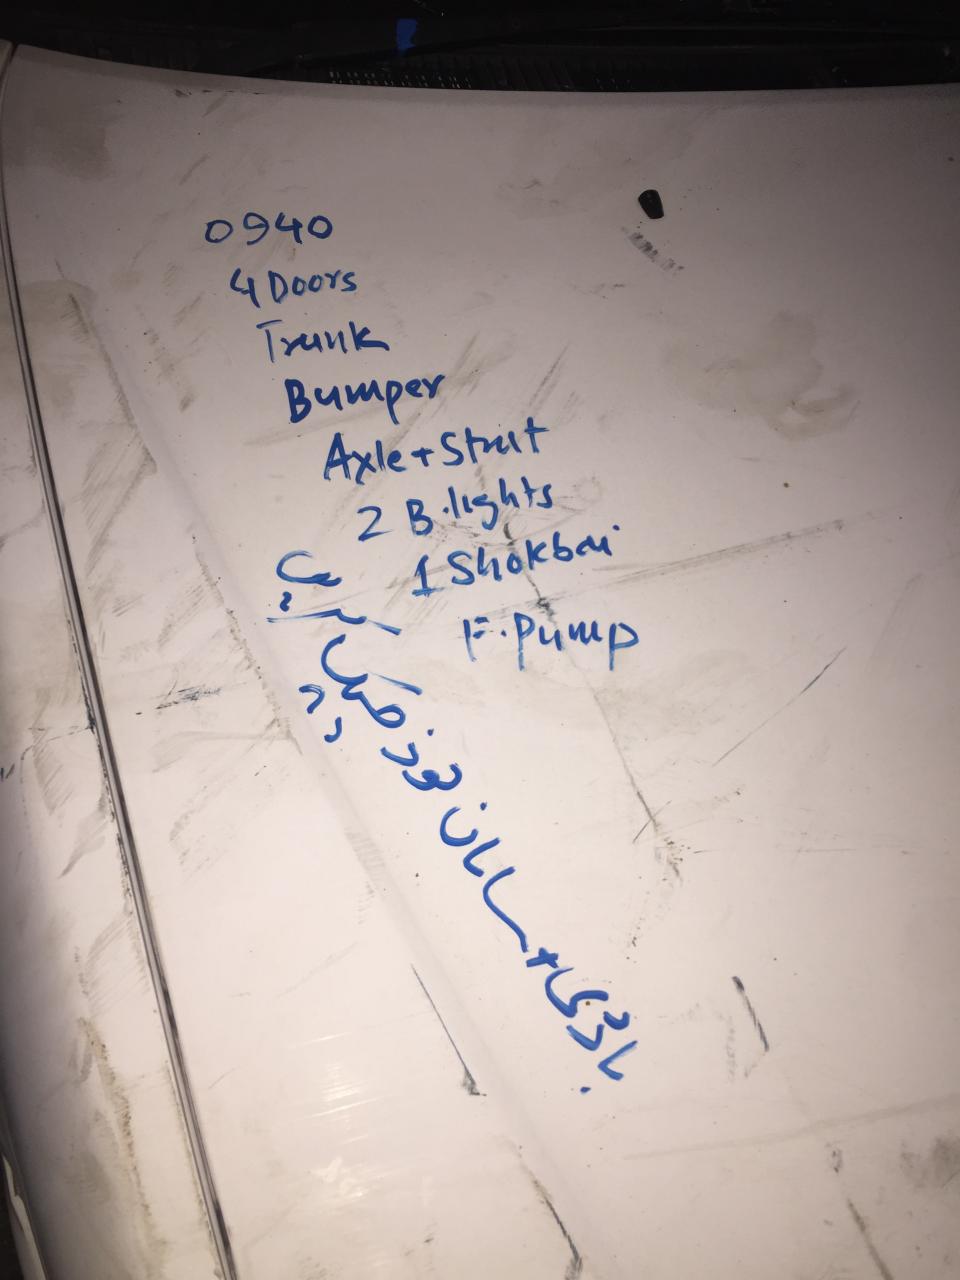 0940
4 Doors
Trunk
Bumper
Axle + Strut
2 B.lights
1 Shokbai
F. Pump
باڈی + سامان